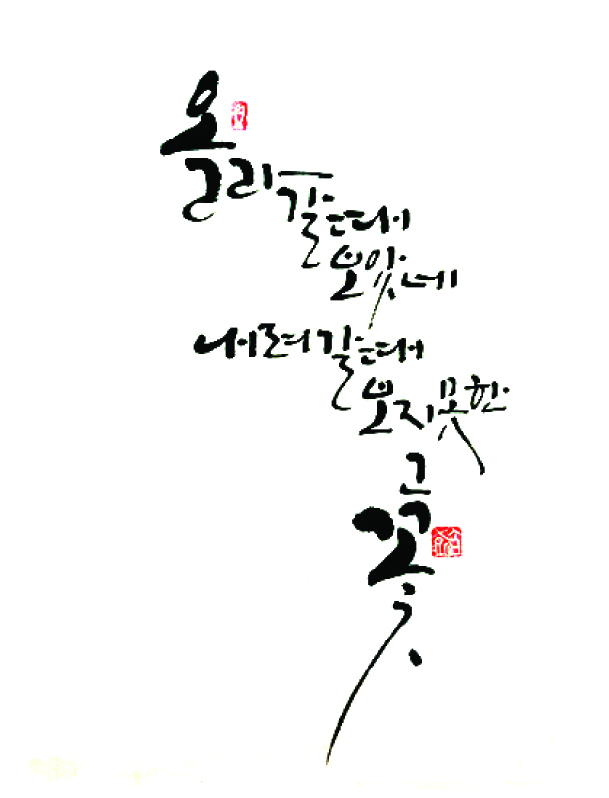 올라갈때
보았네
내려갈때
보지못한
그
꽃